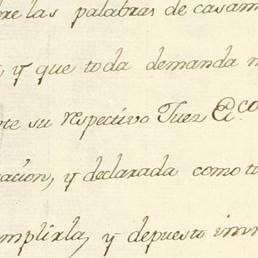 re las palabras de casam
y que toda demanda n
te su respectivo Juez Ec.co
acion, y declarada como t
mplirla, y depuesto inm